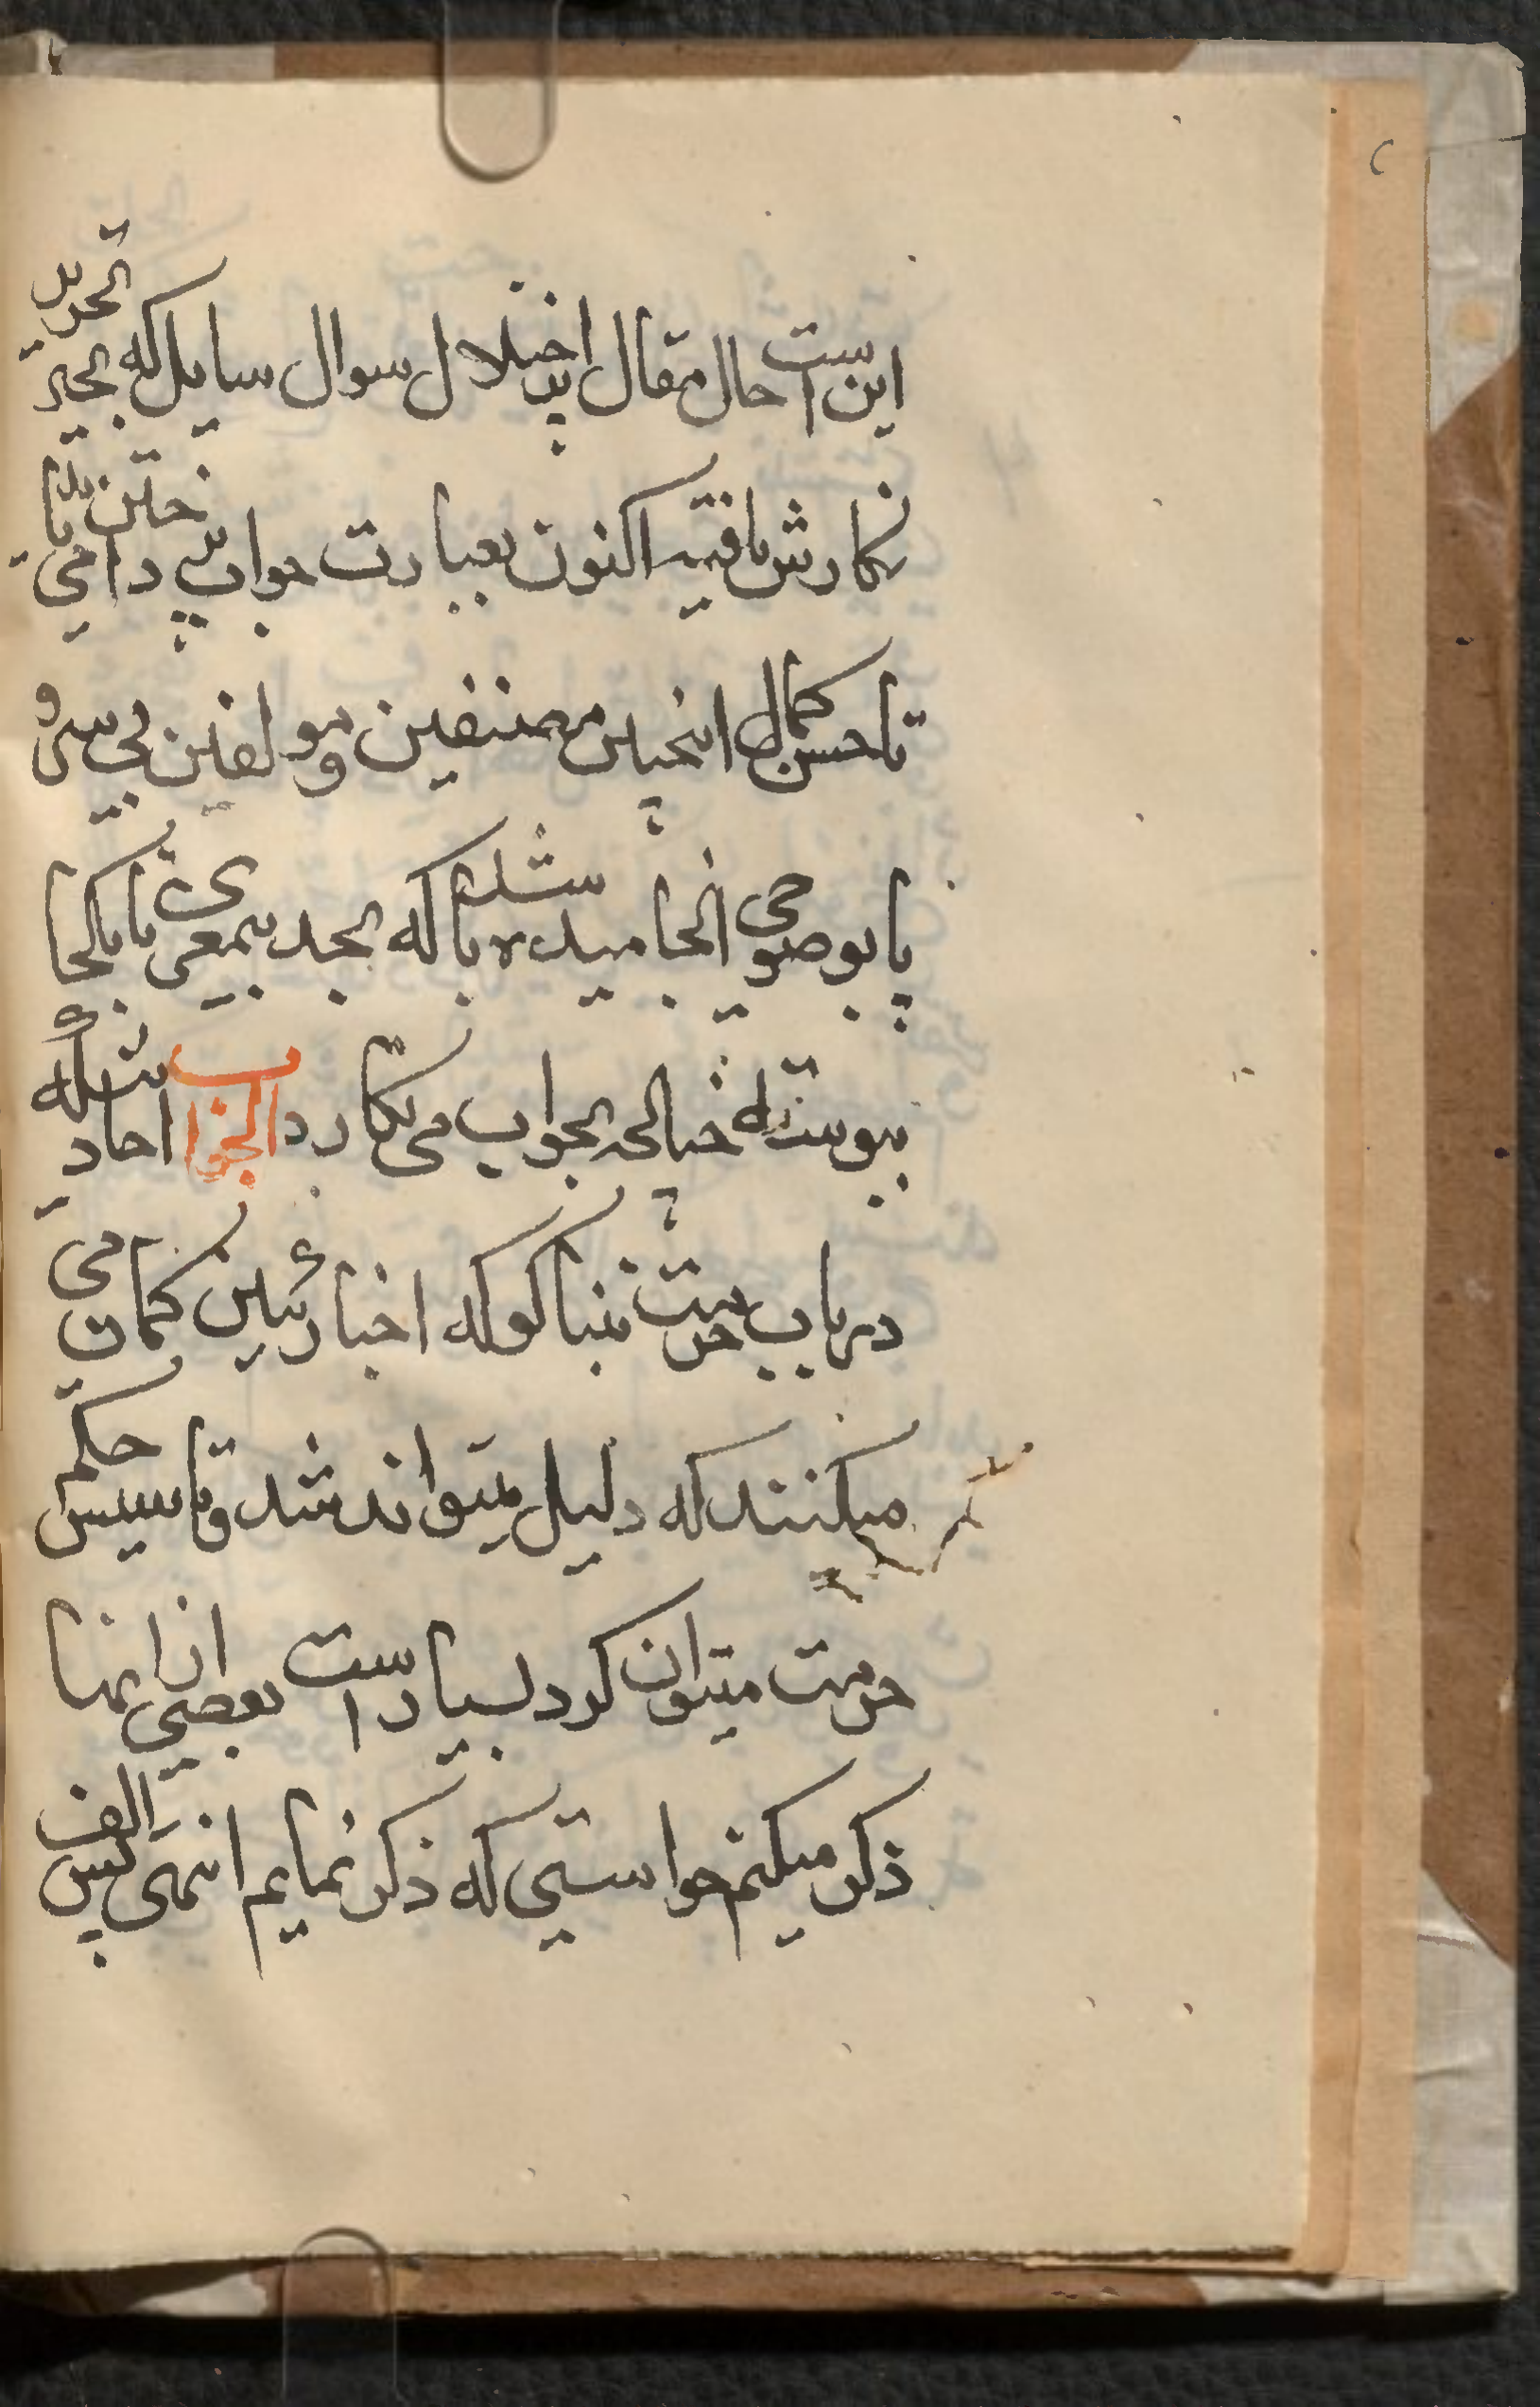 این است حال مقال پر اختلال سوال سایل که بحیز تحریر
نکارش یافته اکنون بعبارت جواب پرداختن می باید
تا حسن کمال اینچنین مصنفین و مولفین بی سر و
پا بوضوحی انجامیده باشد که بحد بمعنی یا بکجا
پیوسته چنانچه بجواب می نکارد الجواب احادیثیکه
در باب حرمت تنباکو که اخبارئین کمان می
میکنند که دلیل میتواند شد و تاسیس حکم
حرمت میتوان کرد بسیار است بعضی از انها
ذکر میکنم حواستی که ذکر نمایم انتهی پس الف